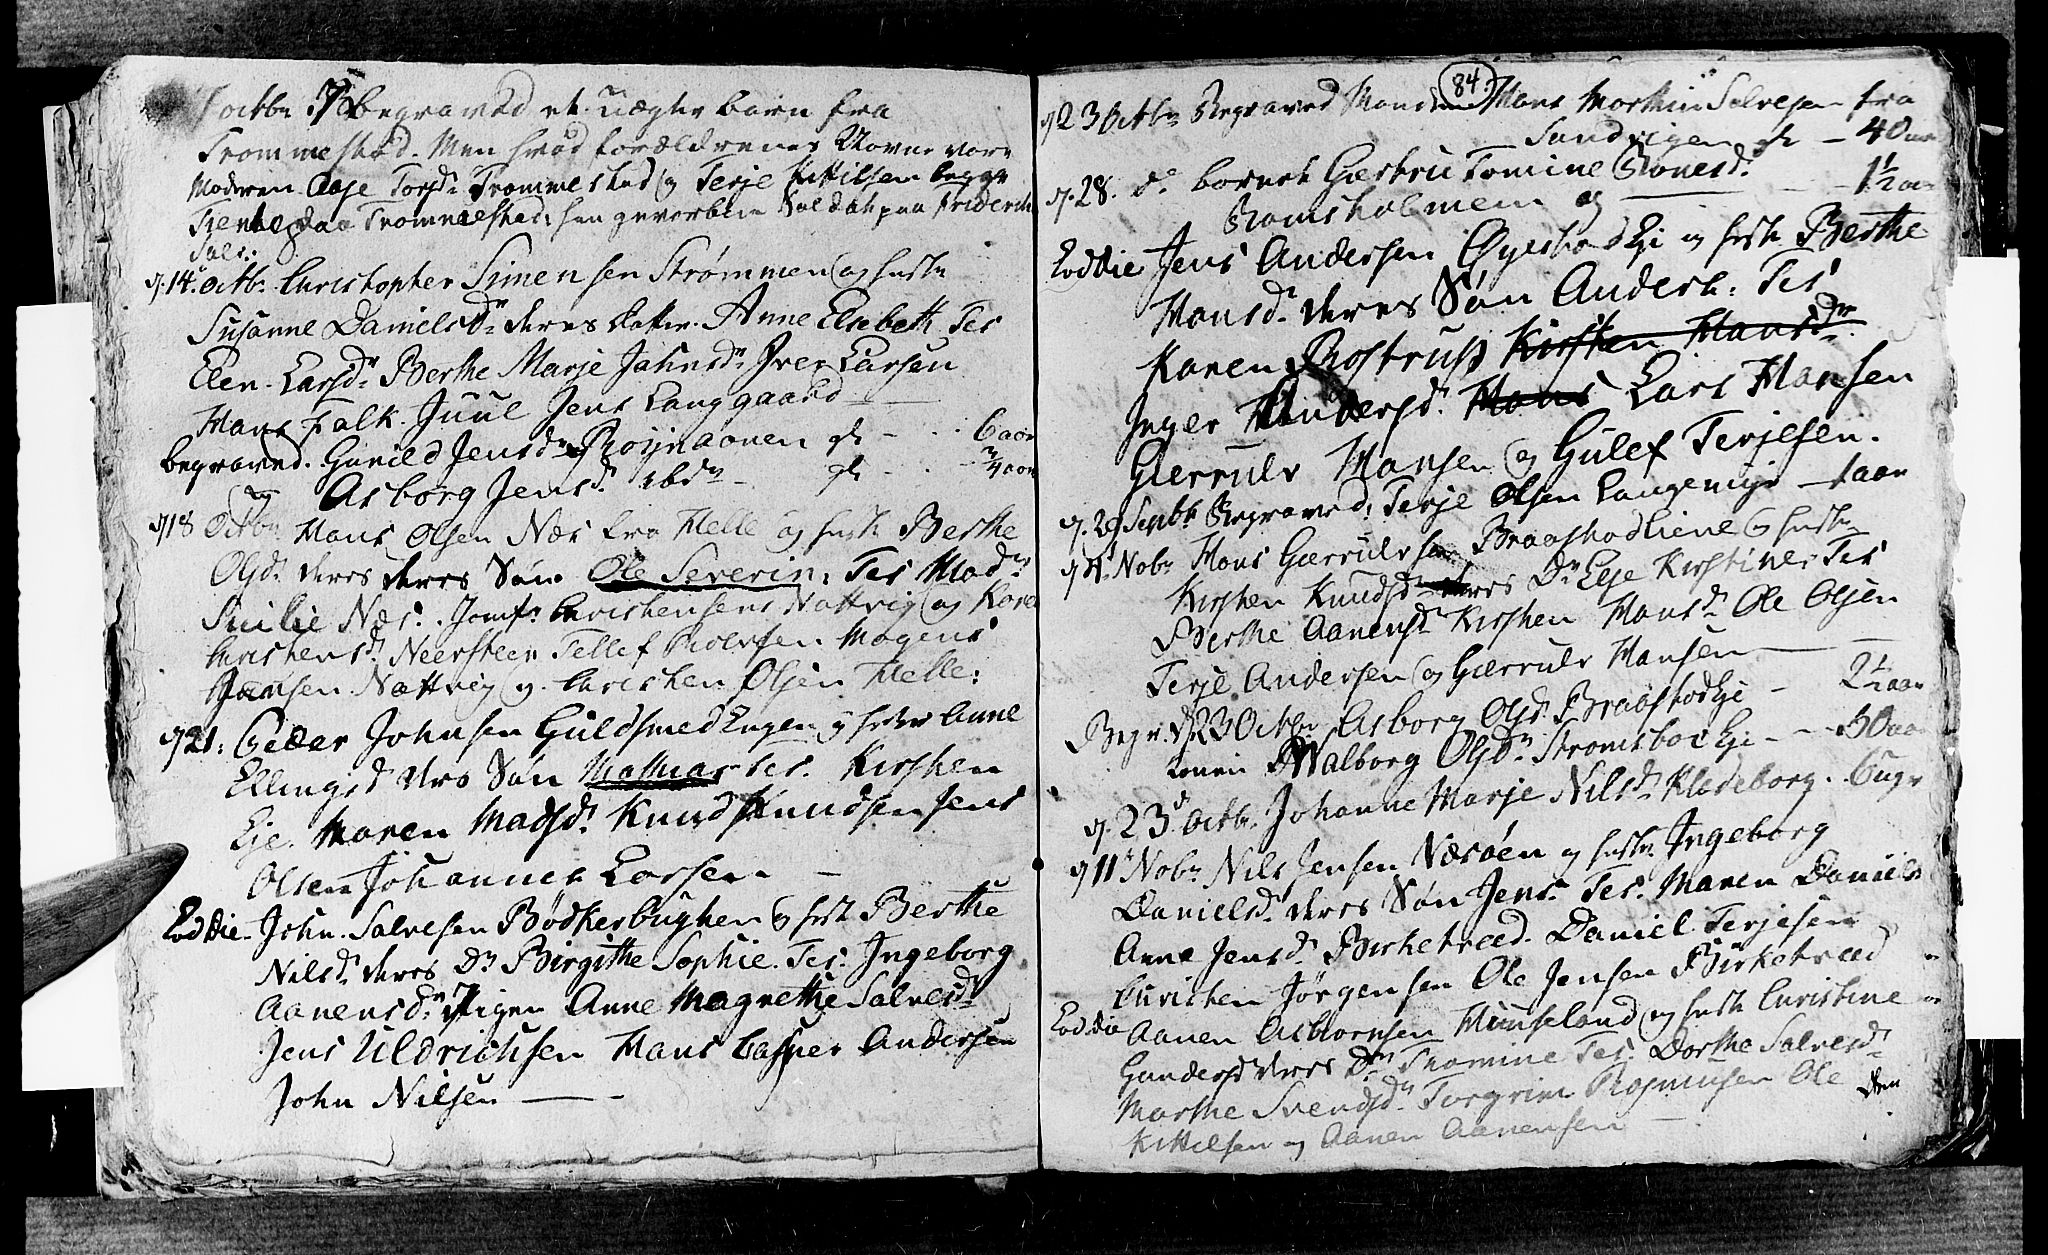 octbr begraved et uægte barn fra
Trommestad. Men hvad forældrenes Navne vare
Moderen Aase Torsdr Trommestad og Terje Kittilsen begge
Tiente paa Trommestad: han geverben Soldat paa Friderich
Sals:
d. 14 octbr Christopher Simensen Strømmen og hustr
Susanne Danielsdr deres datter. Anne Elsebeth Tes
Elen Larsdr Berthe Marje Jahnsdr Iver Larsen
Hans Falk Juul Jens Langgaard
begraved. Gunild Jensdr Røisnaanen gl - - 6 aar
og Asborg Jensd. ibdm gl - - 3/4 aar
d 18 Octbr Hans Olsen Næs fra Helle og hustr Berthe
Olsdr deres deres Søn Ole Severin: Tes Madm
Sicilie Næs. Jomfr Christensens Nattvig og Karen
Christensd. Neersteen Tellef Møl
Jansen Nattvig og Christen Olsen Helle:
d 21: Peder Johnsen Guldsmed Engen og hustr Anne
Ellingsd ders Søn Mathias Tes. Kirsten
Eje Maren Madsdr Knud Knudsen Jens
Olsen Johannes Larsen
Eoddie John Salvesen Bødkerbughen og hustr Berthe
Nilsdr deres Dr Birgithe Sophie. Tes. Ingeborg
Aanensdr Pigen Anne Magrethe Salvesdr
Jens Uldrichsen Hans Casper Andersen
John Nilsen
84.
d 23 Octbr Begraved Hans Morthen Salvesen fra
Sandvigen gl - 40 aar
d. 28. do barnet Giertru Tomine Ronesdr
Ramsholmen og - 1 1/2 aar
Eoddie Jens Andersen Øyestad Eje og hustr Berthe
Hansdr deres Søn Anders: Tes
Karen Rostrup Kirsten Hansdr
Inger Andersdr Hans Lars Hansen
Gierrulv Hansen og Gulef Terjesen.
d. 29 Septbr Begraved: Terje Olsen Langemyr - 1 aar
d 4 Nobr Hans Gierrulvsen Braastadliene og hustr
Kirsten Knudsdr deres Dr Else Kirstine Tes
Berthe Aanensdr Kirsten Hansdr Ole Olsen
Terje Andersen og Gierrulv Hansen
Begr. d 23 Octbr Asborg Olsdr Braastad Eje - 2 1/2 aar
konen Walborg Olsdr Strømsboe Eje - - 50 aar
d. 23 octbr Johanne Marje Nilsdr Kladeborg. 6 ugr
d 11 Nobr Nils Jensen Næsøen og hustr Ingeborg
Danielsdr deres Søn Jens. Tes. Maren Daniels
Anne Jensdr Birketveed. Daniel Terjesen
Christen Jørgensen Ole Jensen Birketveed
Eoddie Aanen Asbiørnsen Hunseland og hustr Christine
Gundersd deres Dr Thomine Tes. Dorthe Salvesdr
Marthe Svendsdr Torgrim Rasmusen Ole
Kittilsen og Aanen Aanensen
den